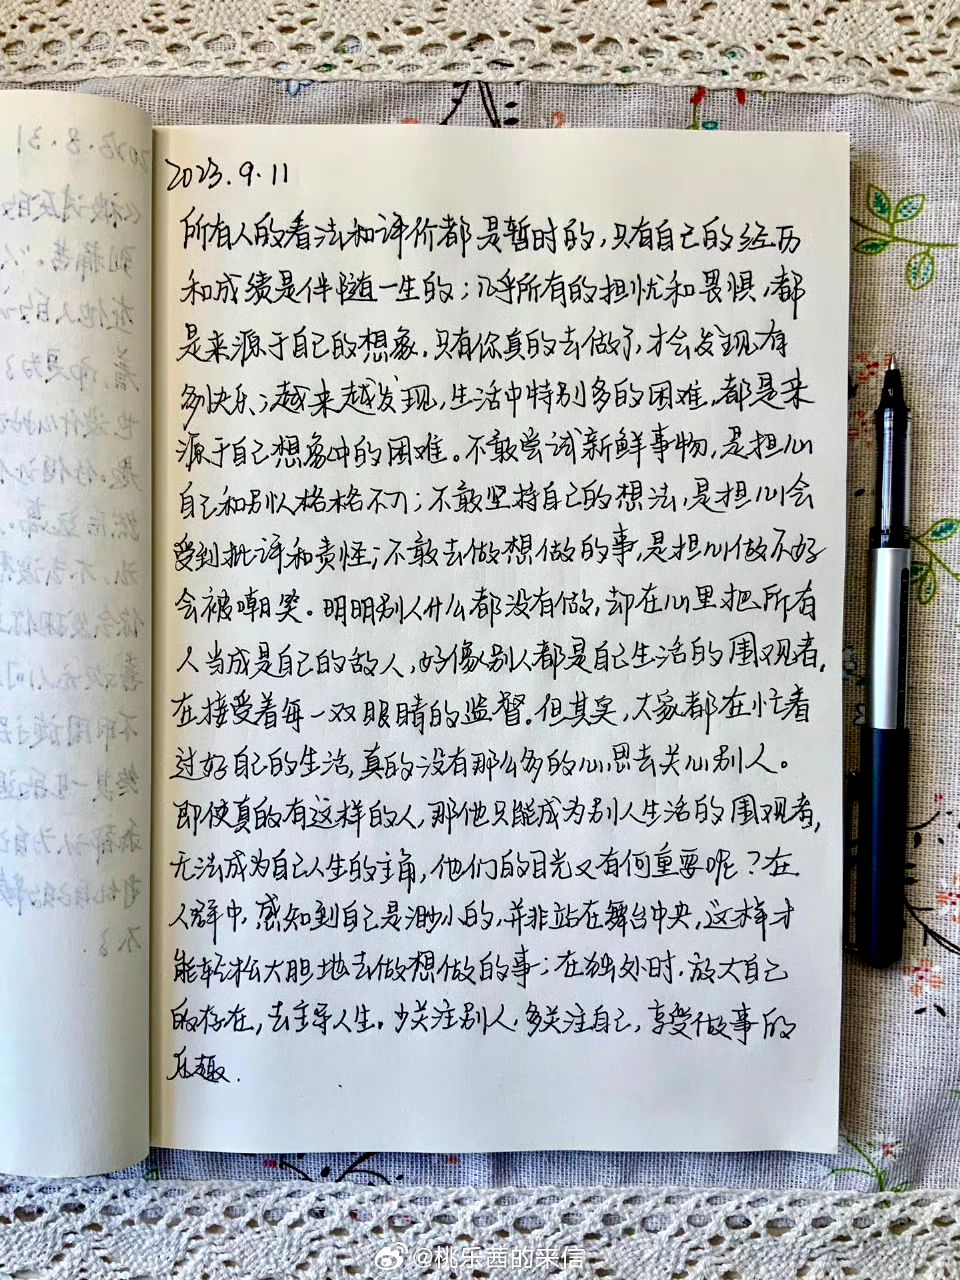 2023.9.11
所有人的看法和评价都是暂时的,只有自己的经历
和成绩是伴随一生的;几乎所有的担忧和畏惧,都
是来源于自己的想象.只有你真的去做了,才会发现有
多快乐;越来越发现,生活中特别多的困难,都是来
源于自己想象中的困难。不敢尝试新鲜事物,是担心
自己和别人格格不入;不敢坚持自己的想法,是担心会
受到批评和责怪;不敢去做想做的事,是担心做不好
会被嘲笑。明明别人什么都没有做,却在心里把所有
人当成是自己的敌人,好像别人都是自己生活的围观者,
在接受着每一双眼睛的监督.但其实,大家都在忙着
过好自己的生活,真的没有那么多的心思去关心别人。
即使真的有这样的人,那他只能成为别人生活的围观者,
无法成为自己人生的主角,他们的目光又有何重要呢?在
人群中,感知到自己是渺小的,并非站在舞台中央,这样才
能轻松大胆地去做想做的事;在独处时.放大自己
的存在,去主导人生.少关注别人.多关注自己,享受做事的
乐趣.
2023.8.31
@桃乐茜的来信